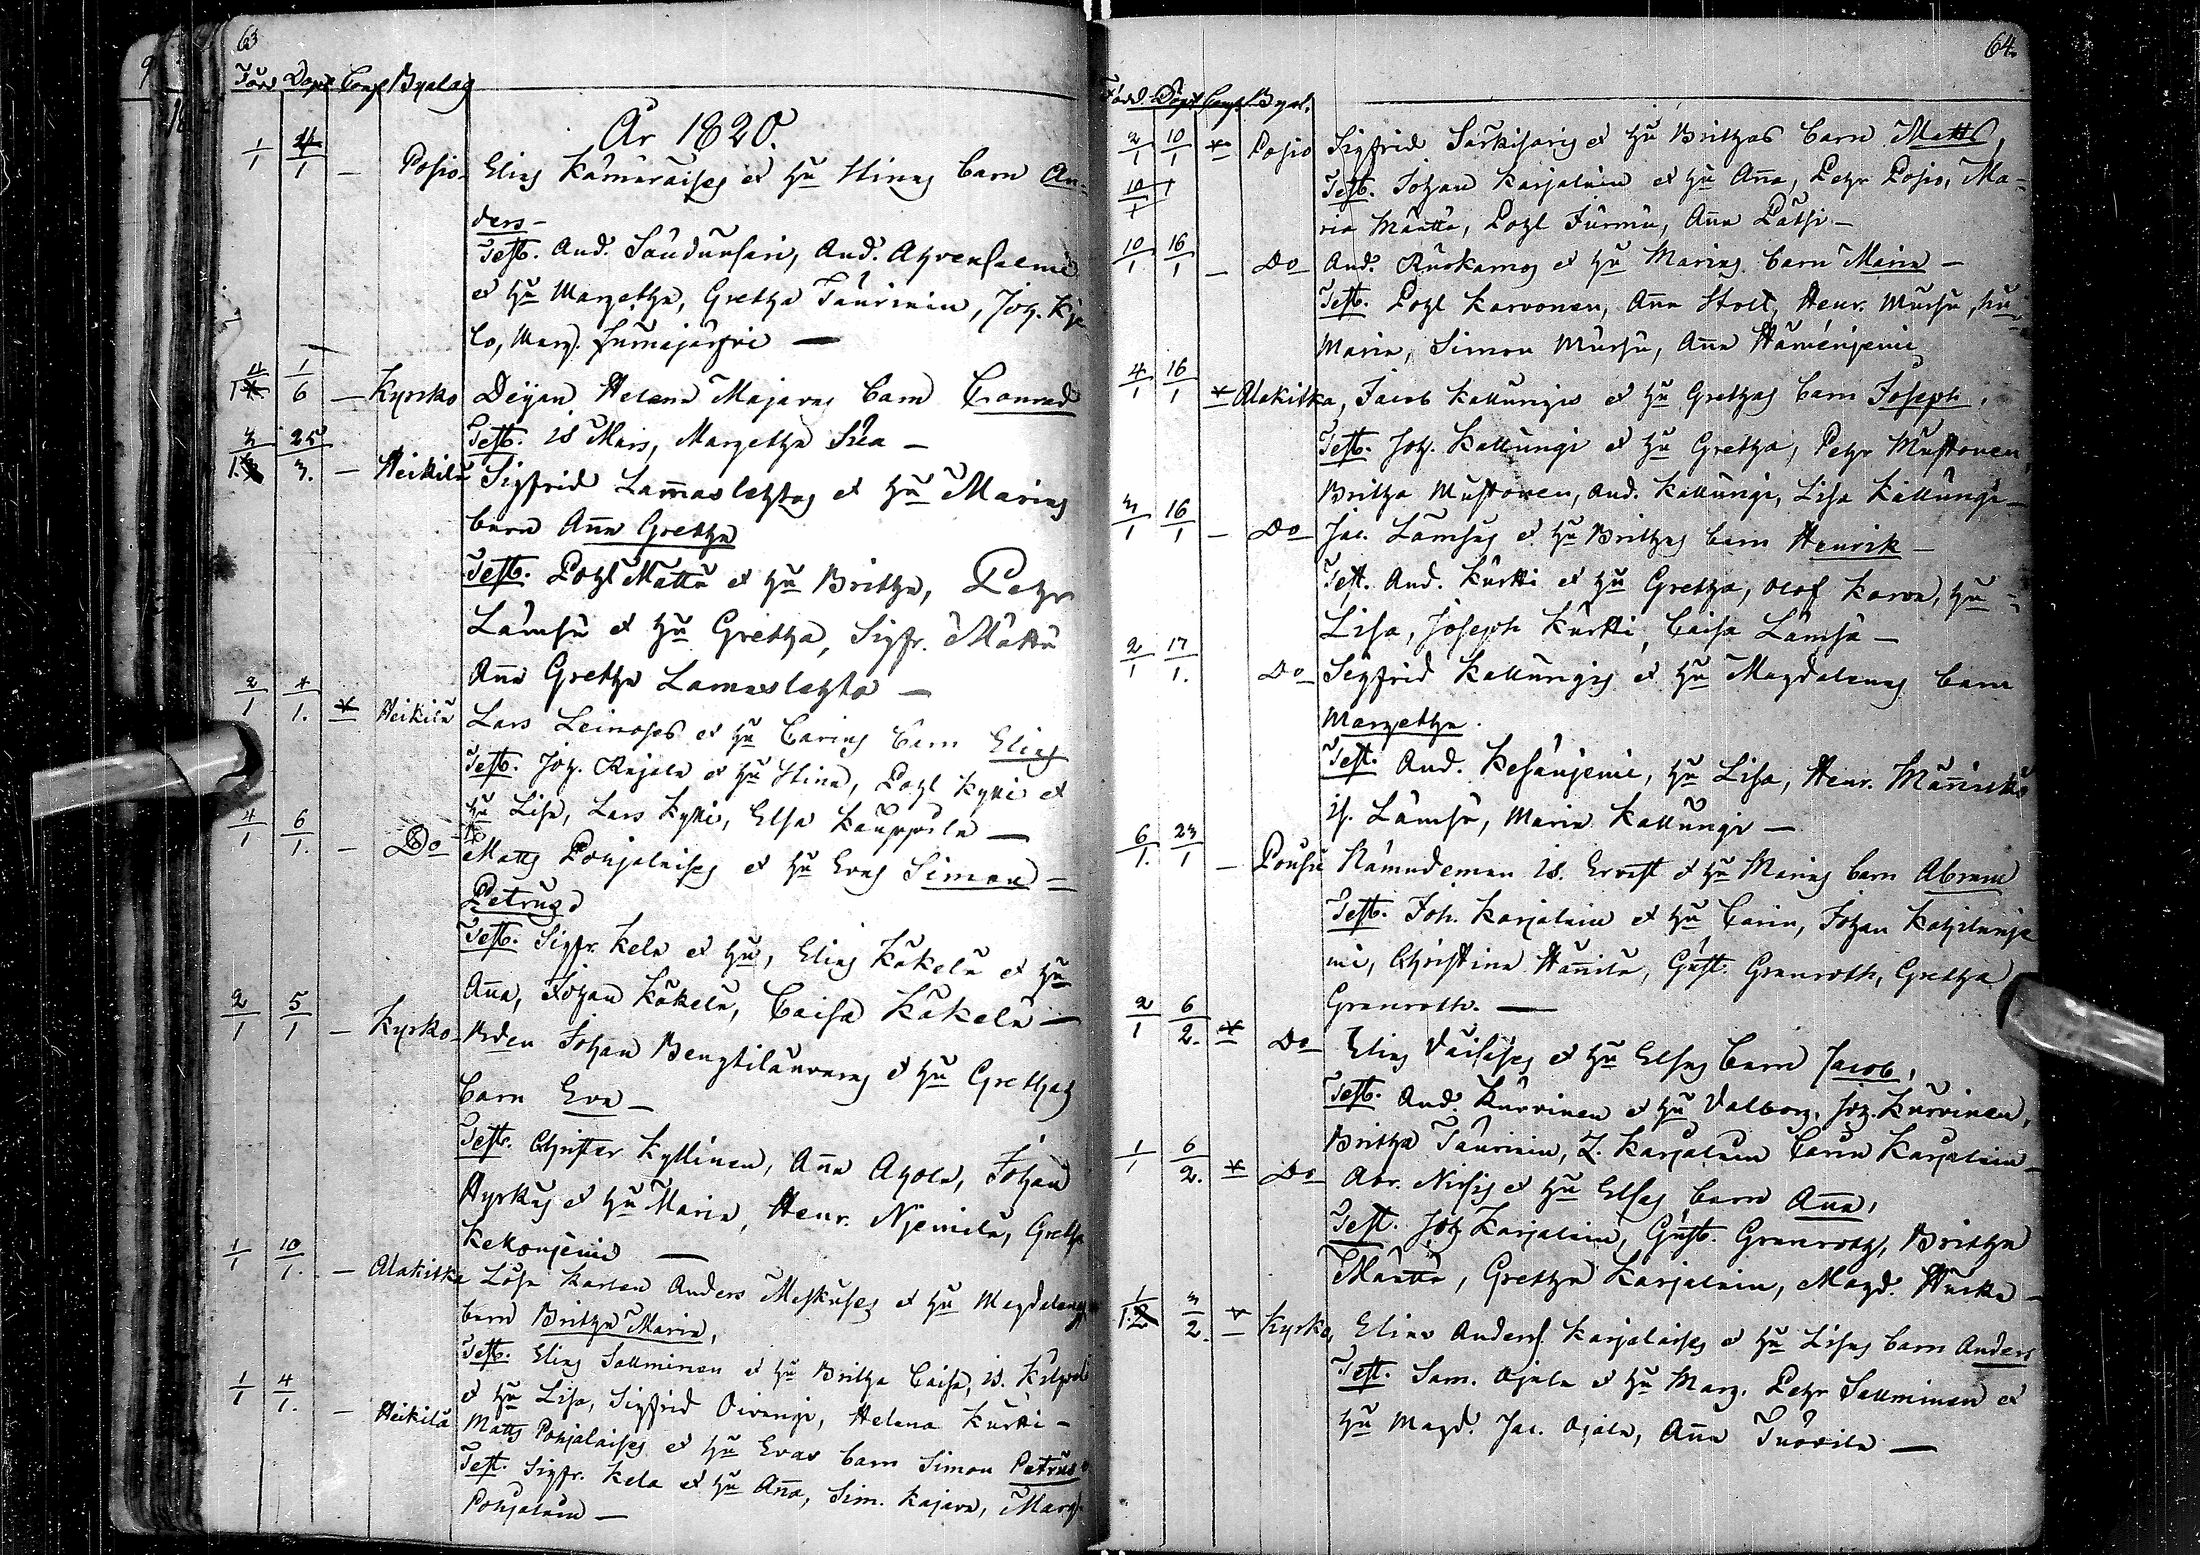 63
Född Döpt Conf Byalag
År 1820.
1/1 4/1 – Posio. Elias Kämäräises et Hu Stinas barn An-
ders –
Test. And. Saudunsari, And. Ahvensalmi
et Hu Margetha, Gretha Taurinin, Joh.
lo, Marg. Sumajärfvi —
11/1 1/6 – Kyrko Deijan Helena Majavas barn Conrad
Test. is Mars, Margetha –
3/1 25/3. – Heikilä Sigfrid Lamaslehtos et Hu Marias
barn Aña Gretha
Test. Pohl Mättä et Hu Britha, Pehr
Lämsä et Hu Gretha, Sigfr. Mättä
Aña Gretha Lamaslehto –
2/1 4/1. * Heikilä Lars Leinoses et Hu Carins barn Elias
Test. Joh. Rajala et Hu Stina, Pohl Kylli et
Hu Lisa, Lars Kylli, Elsa Kauppila —
4/1 6/1. – Do Matts Pohjalaises et Hu Evas Simon
Petrus
Test. Sigfr. Kela et Hu, Elias Käkelä et Hu
Aña, Johan Käkelä, Caisa Käkelä –
2/1 5/1 – Kyrko Bden Johan Bengtilauraes et Hu Grethas
barn Eva –
Test. Christer Kyllinen, Aña Ahola, Johan
Hyrkäs et Hu Maria, Henr. Njemilä, Gretha
Kellonjemi —
1/1 10/1. – Alakitka Lösa Karlen Anders Meskuses et Hu Magdalenas
barn Britha Maria,
Test. Elias Sallminen et Hu Britha Caisa, is.
et Hu Lisa, Sigfrid Oivanje, Helena Kurtti –
1/1 4/1. – Heikilä Matts Pohjalaises et Hu Evas barn Simon Petrus
Test. Sigfr. Kela et Hu Aña, Sim. Kajava, Marg.
Pohjalain –
64.
Född Döpt Conf Byal.
2/1 10/1 * Posio Sigfrid Särkisaris et Hu Brithas barn Matts,
10/1 Test. Johan Karjalain et Hu Aña, Pehr Posio, Ma-
ria Määttä, Pohl Jurmu, Aña Pätsi –
10/1 16/1 – Do And. Ruokamos et Hu Marias barn Maria –
Test. Pohl Karvonen, Aña Stolt, Henr. Mursu, hu
Maria, Simon Mursu, Aña Hämenjemi
4/1 16/1 * Alakitka, Jacob Kallungis et Hu Grethas barn Joseph,
Test. Joh. Kallungi et Hu Gretha, Pehr Mustonen,
Britha Mustonen, And. Kallungi, Lisa Kallungi –
3/1 16/1 – Do Jac. Lämsäs et Hu Brithas barn Henrik –
Test. And. Kurtti et Hu Gretha, Olof Karva, Hu
Lisa, Joseph Kurtti, Caisa Lämsä –
2/1 17/1. Do Sigfrid Kallungis et Hu Magdalenas barn
Margetha.
Test. And. Kesänjemi, Hu Lisa, Henr. Mänikkö
is. Lämsä, Maria Kallungi —
6/1. 23/1 – Pousu Nämndeman is. Ervast et Hu Marias barn Abram
Test. Joh. Karjalain et Hu Carin, Johan Kohilanje
mi, Christina Hänilä, Gust. Granroth, Gretha
Granroth. —
2/1 6/2. * Do Elias Väisäses et Hu Elsas barn Jacob,
Test. And. Kurvinen et Hu Valborg, Joh. Kurvinen,
Britha Taurinin, Z. Karjalain Carin Karjalain –
1/1 6/2. * Do Abr. Nisis et Hu Elsas barn Aña,
Test. Joh Karjalain, Gust. Granroth, Britha
Määttä, Gretha Karjalain, Magd. Harka –
1/1 3/2. * Kyrko, Elias Anders. Karjalaises et Hu Lisas barn Anders
Test. Sam. Ojala et Hu Marg. Pehr Sallminen et
Hu Magd. Jac. Ojala, Aña Tuovila —